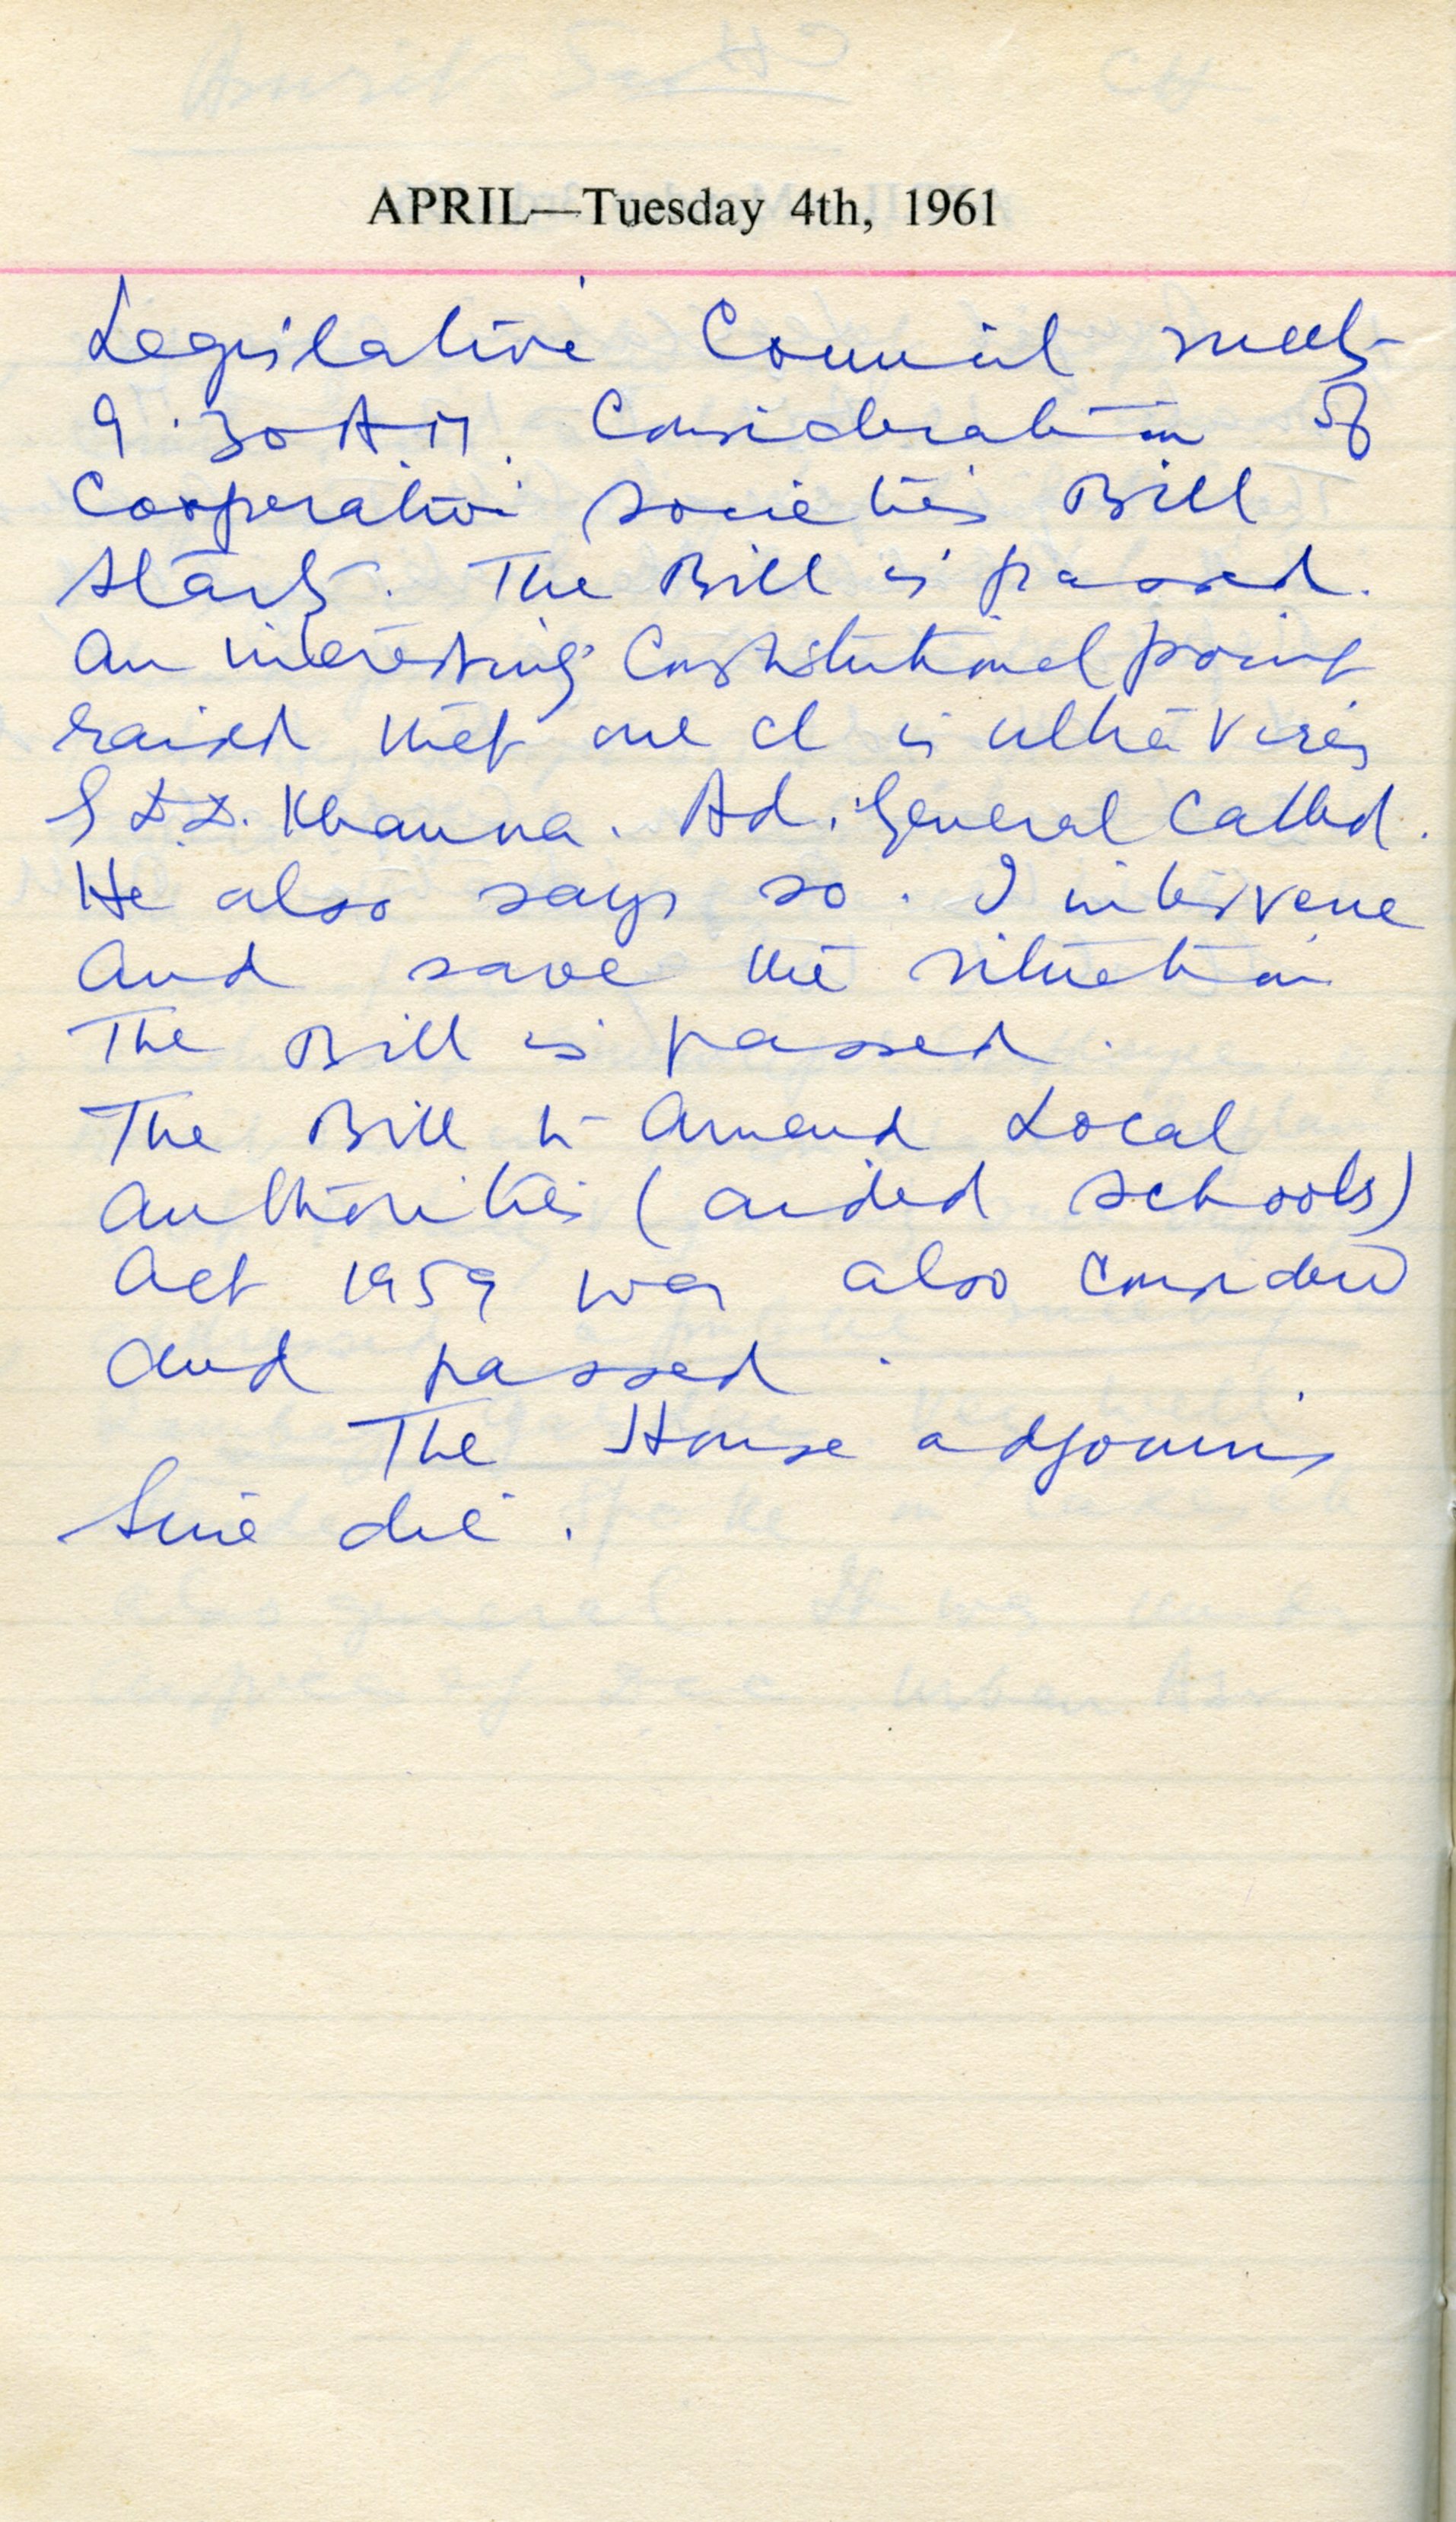 APRIL—Tuesday 4th, 1961
Legislative Council meets
9.30 A.M. Consideration of
Cooperative Societies Bill
starts. The Bill is passed.
An interesting Constitutional point
raised that one cl is ultra vires
Khanna. Ad. General Called.
He also says so. I intervene
And save the situation
The Bill is passed.
The Bill to Amend Local
Authorities (aided schools)
Act 1959 was also considered
And passed.
The House adjourns
Sine die.